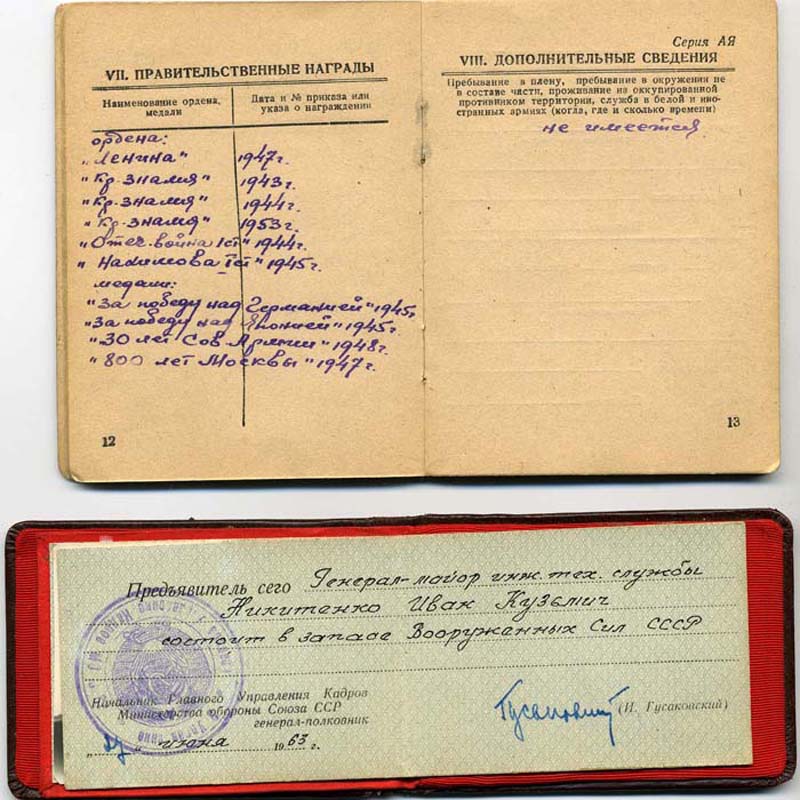 VII. ПРАВИТЕЛЬСТВЕННЫЕ НАГРАДЫ
Наименование ордена, медали
Дата и № приказа или указа о награждении
ордена:
"Ленина" 1947г.
"Кр. знамя" 1943г.
"Кр. знамя" 1944г.
"Кр. знамя" 1953г.
"Отеч. война I ст" 1944г.
"Нахимова I ст" 1945г.
медали:
"За победу над Германией" 1945г.
"За победу над Японией" 1945г.
"30 лет Сов Армии" 1948г.
"800 лет Москвы" 1947г.
12
Серия АЯ
VIII. ДОПОЛНИТЕЛЬНЫЕ СВЕДЕНИЯ
Пребывание в плену, пребывание в окружении не
в составе части, проживание на оккупированной
противником территории, служба в белой и ино-
странных армиях (когда, где и сколько времени)
не имеется
13
Предъявитель сего Генерал-майор инж. тех. службы
Никитенко Иван Кузьмич
состоит в запасе Вооруженных Сил СССР
Начальник Главного Управления Кадров
Министерства обороны Союза ССР
генерал-полковник
Гусаковский (И. Гусаковский)
июня 1963 г.